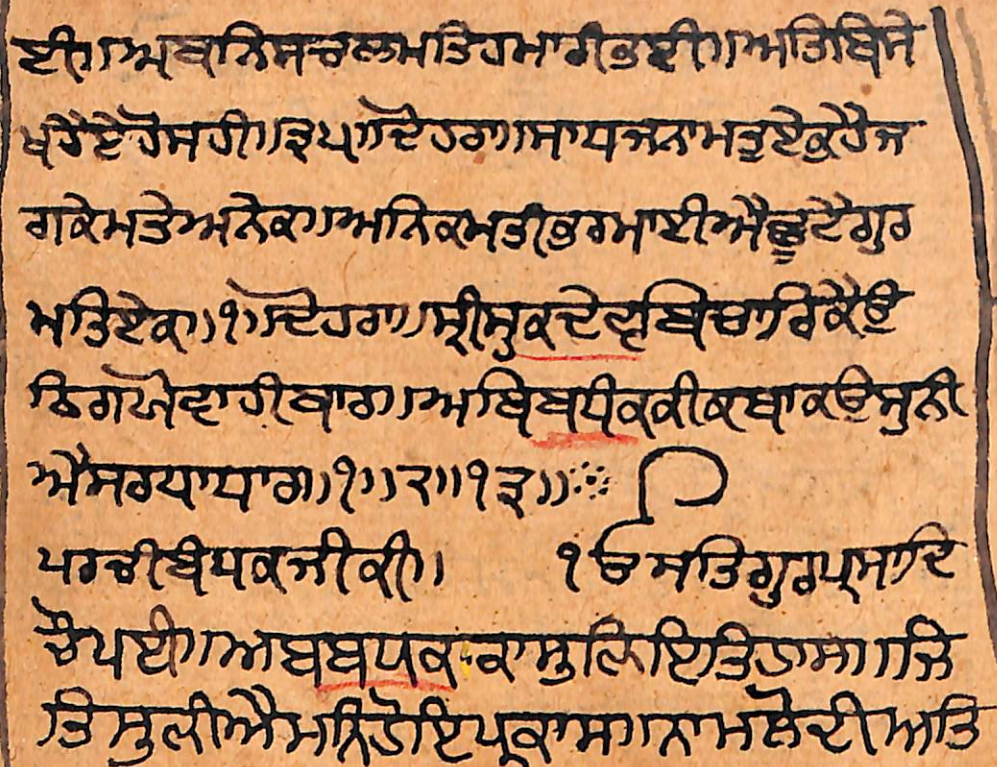 ਈ॥ਅਬਨਿਸਚਲਮਤਿਹਮਾਰੀਭਈ॥ਅਤਿਬਿਸੇ
ਖਹੈਏਹੋਸਹੀ॥੩੫॥ਦੋਹਰਾ॥ਸਾਧਜਨਾਮਤੁਏਕੁਹੈਜ
ਗਕੇਮਤੇਅਨੇਕ॥ਅਨਿਕਮਤੀਭਰਮਾਈਐਛੁਟੈਗੁਰ
ਮਤਿਏਕ॥੧॥ਦੋਹਰਾ॥ਸ੍ਰੀਸੁਕਦੇਵਬਿਚਾਰਿਕੈਉ
ਠਿਗਏਵਾਹੀਬਾਰ॥ਅਬਿਬਧਿਕਕੀਕਥਾਕਉਸੁਨੀ
ਐਸਰਧਾਧਾਰ॥੧॥੨॥੧੩॥
ਪਰਚੀਬਧਿਕਜੀਕੀ॥ ੴਸਤਿਗੁਰਪ੍ਰਸਾਦਿ
ਚੌਪਈ॥ਅਬਬਧਕਕਾਸੁਨਿਇਤਿਹਾਸ॥ਜਿ
ਤਿਸੁਨੀਐਮਨਿਹੋਇਪ੍ਰਕਾਸ॥ਨਾਮਲੋਦੀਅਤਿ